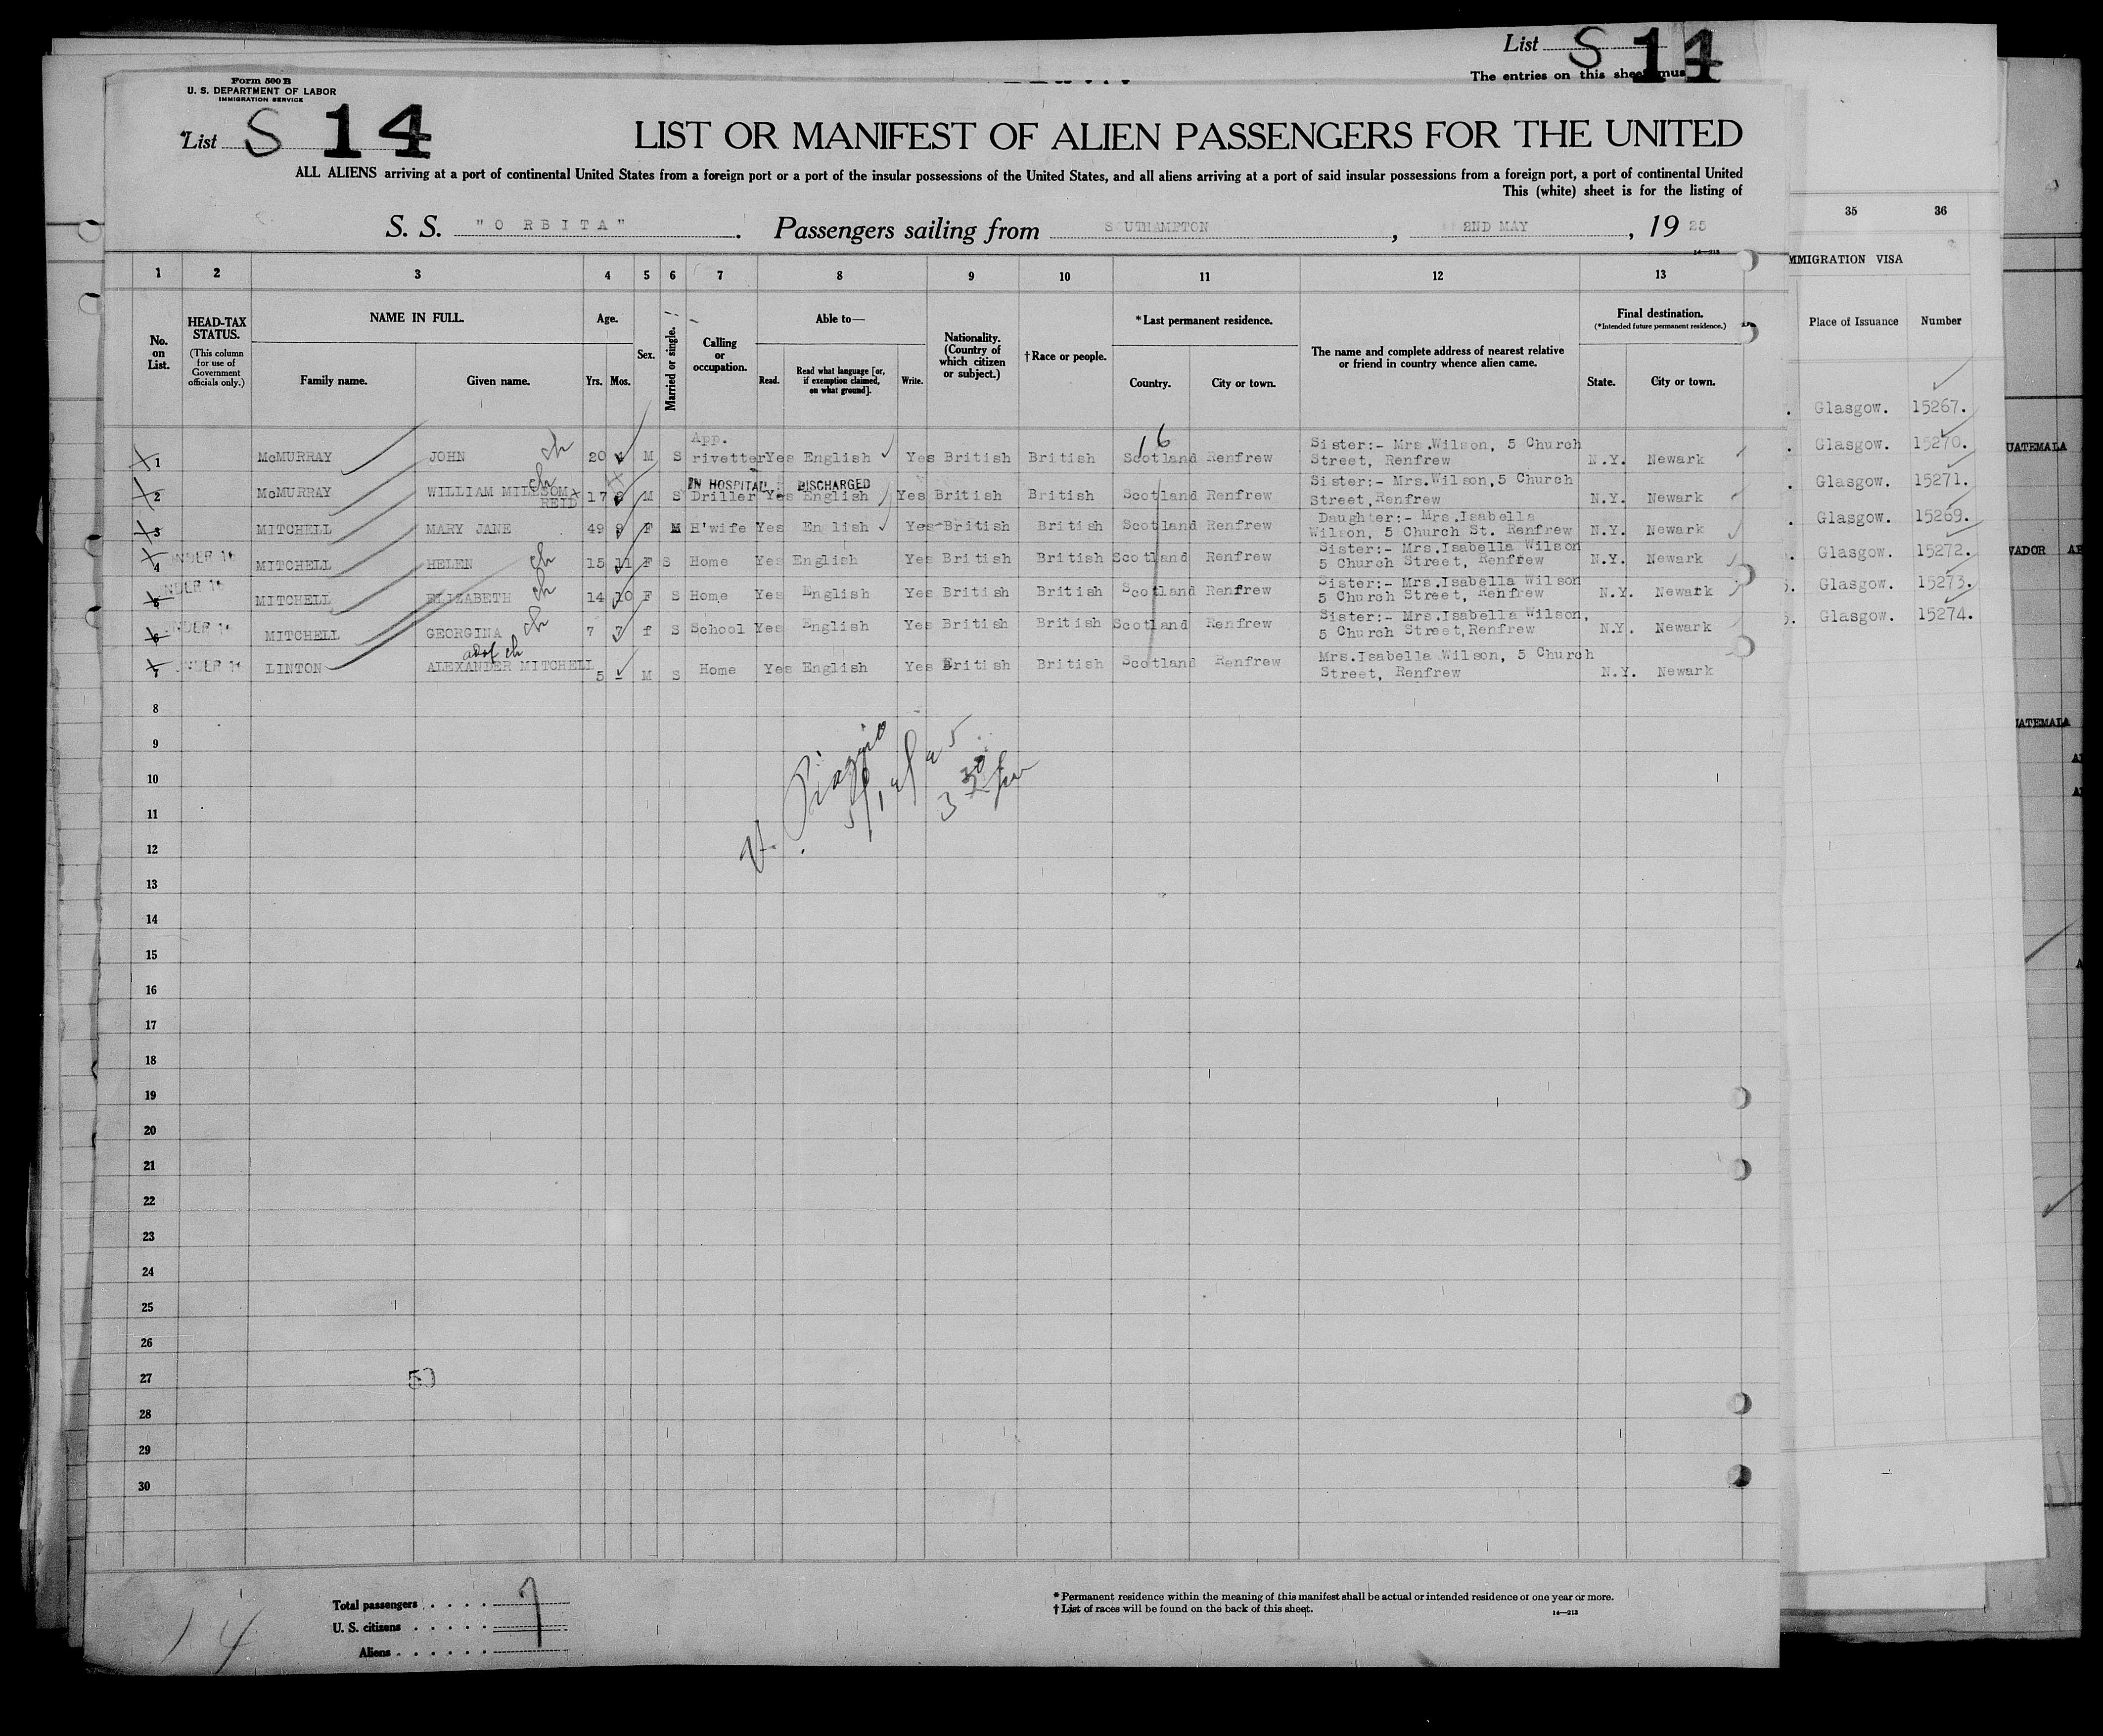 List S 14
The entries on this sheet mus
Form 500 B
U. S. DEPARTMENT OF LABOR
IMMIGRATION SERVICE
*List S 14
LIST OR MANIFEST OF ALIEN PASSENGERS FOR THE UNITED
ALL ALIENS arriving at a port of continental United States from a foreign port or a port of the insular possessions of the United States, and all aliens arriving at a port of said insular possessions from a foreign port, a port of continental United
This (white) sheet is for the listing of
S. S. "ORBITA". Passengers sailing from SOUTHAMPTON, 2ND MAY, 19 25
14—213
1 2 3 4 5 6 7 8 9 10 11 12 13 35 36
IMMIGRATION VISA
No. on List.
HEAD-TAX STATUS.
(This column for use of Government officials only.)
NAME IN FULL.
Family name. Given name.
Age.
Yrs. Mos.
Sex.
Married or single.
Calling or occupation.
Able to—
Read. Read what language [or, if exemption claimed, on what ground]. Write.
Nationality. (Country of which citizen or subject.)
†Race or people.
*Last permanent residence.
Country. City or town.
The name and complete address of nearest relative or friend in country whence alien came.
Final destination.
(*Intended future permanent residence.)
State. City or town.
Place of Issuance Number
Glasgow. 15267.
Glasgow. 15270.
Glasgow. 15271.
Glasgow. 15269.
Glasgow. 15272.
Glasgow. 15273.
Glasgow. 15274.
16
1 McMURRAY JOHN ch 20 M S App. rivetter Yes English Yes British British Scotland Renfrew Sister:- Mrs.Wilson, 5 Church Street, Renfrew N.Y. Newark
IN HOSPITAL DISCHARGED
2 McMURRAY WILLIAM MILLSOM REID ch 17 M S Driller Yes English Yes British British Scotland Renfrew Sister:- Mrs.Wilson,5 Church Street,Renfrew N.Y. Newark
3 MITCHELL MARY JANE 49 9 F M H'wife Yes En lish Yes British British Scotland Renfrew Daughter:- Mrs.Isabella Wilson, 5 Church St. Renfrew N.Y. Newark
4 UNDER 16 MITCHELL HELEN ch 15 11 F S Home Yes English Yes British British Scotland Renfrew Sister:- Mrs.Isabella Wilson 5 Church Street, Renfrew N.Y. Newark
5 UNDER 16 MITCHELL ELIZABETH ch 14 10 F S Home Yes English Yes British British Scotland Renfrew Sister:- Mrs.Isabella Wilson 5 Church Street, Renfrew N.Y. Newark
6 UNDER 16 MITCHELL GEORGINA ch 7 7 f S School Yes English Yes British British Scotland Renfrew Sister:- Mrs.Isabella Wilson, 5 Church Street,Renfrew N.Y. Newark
7 UNDER 16 LINTON adopt ch ALEXANDER MITCHELL 5 - M S Home Yes English Yes British British Scotland Renfrew Mrs.Isabella Wilson, 5 Church Street, Renfrew N.Y. Newark
8
9
10
11
12
13
14
15
16
17
18
19
20
21
22
23
24
25
26
27 50
28
29
30
Total passengers . . . . 7
U. S. citizens . . . . .
Aliens . . . . . .
* Permanent residence within the meaning of this manifest shall be actual or intended residence of one year or more.
† List of races will be found on the back of this sheet.
14—213
14
GUATEMALA
GUATEMALA